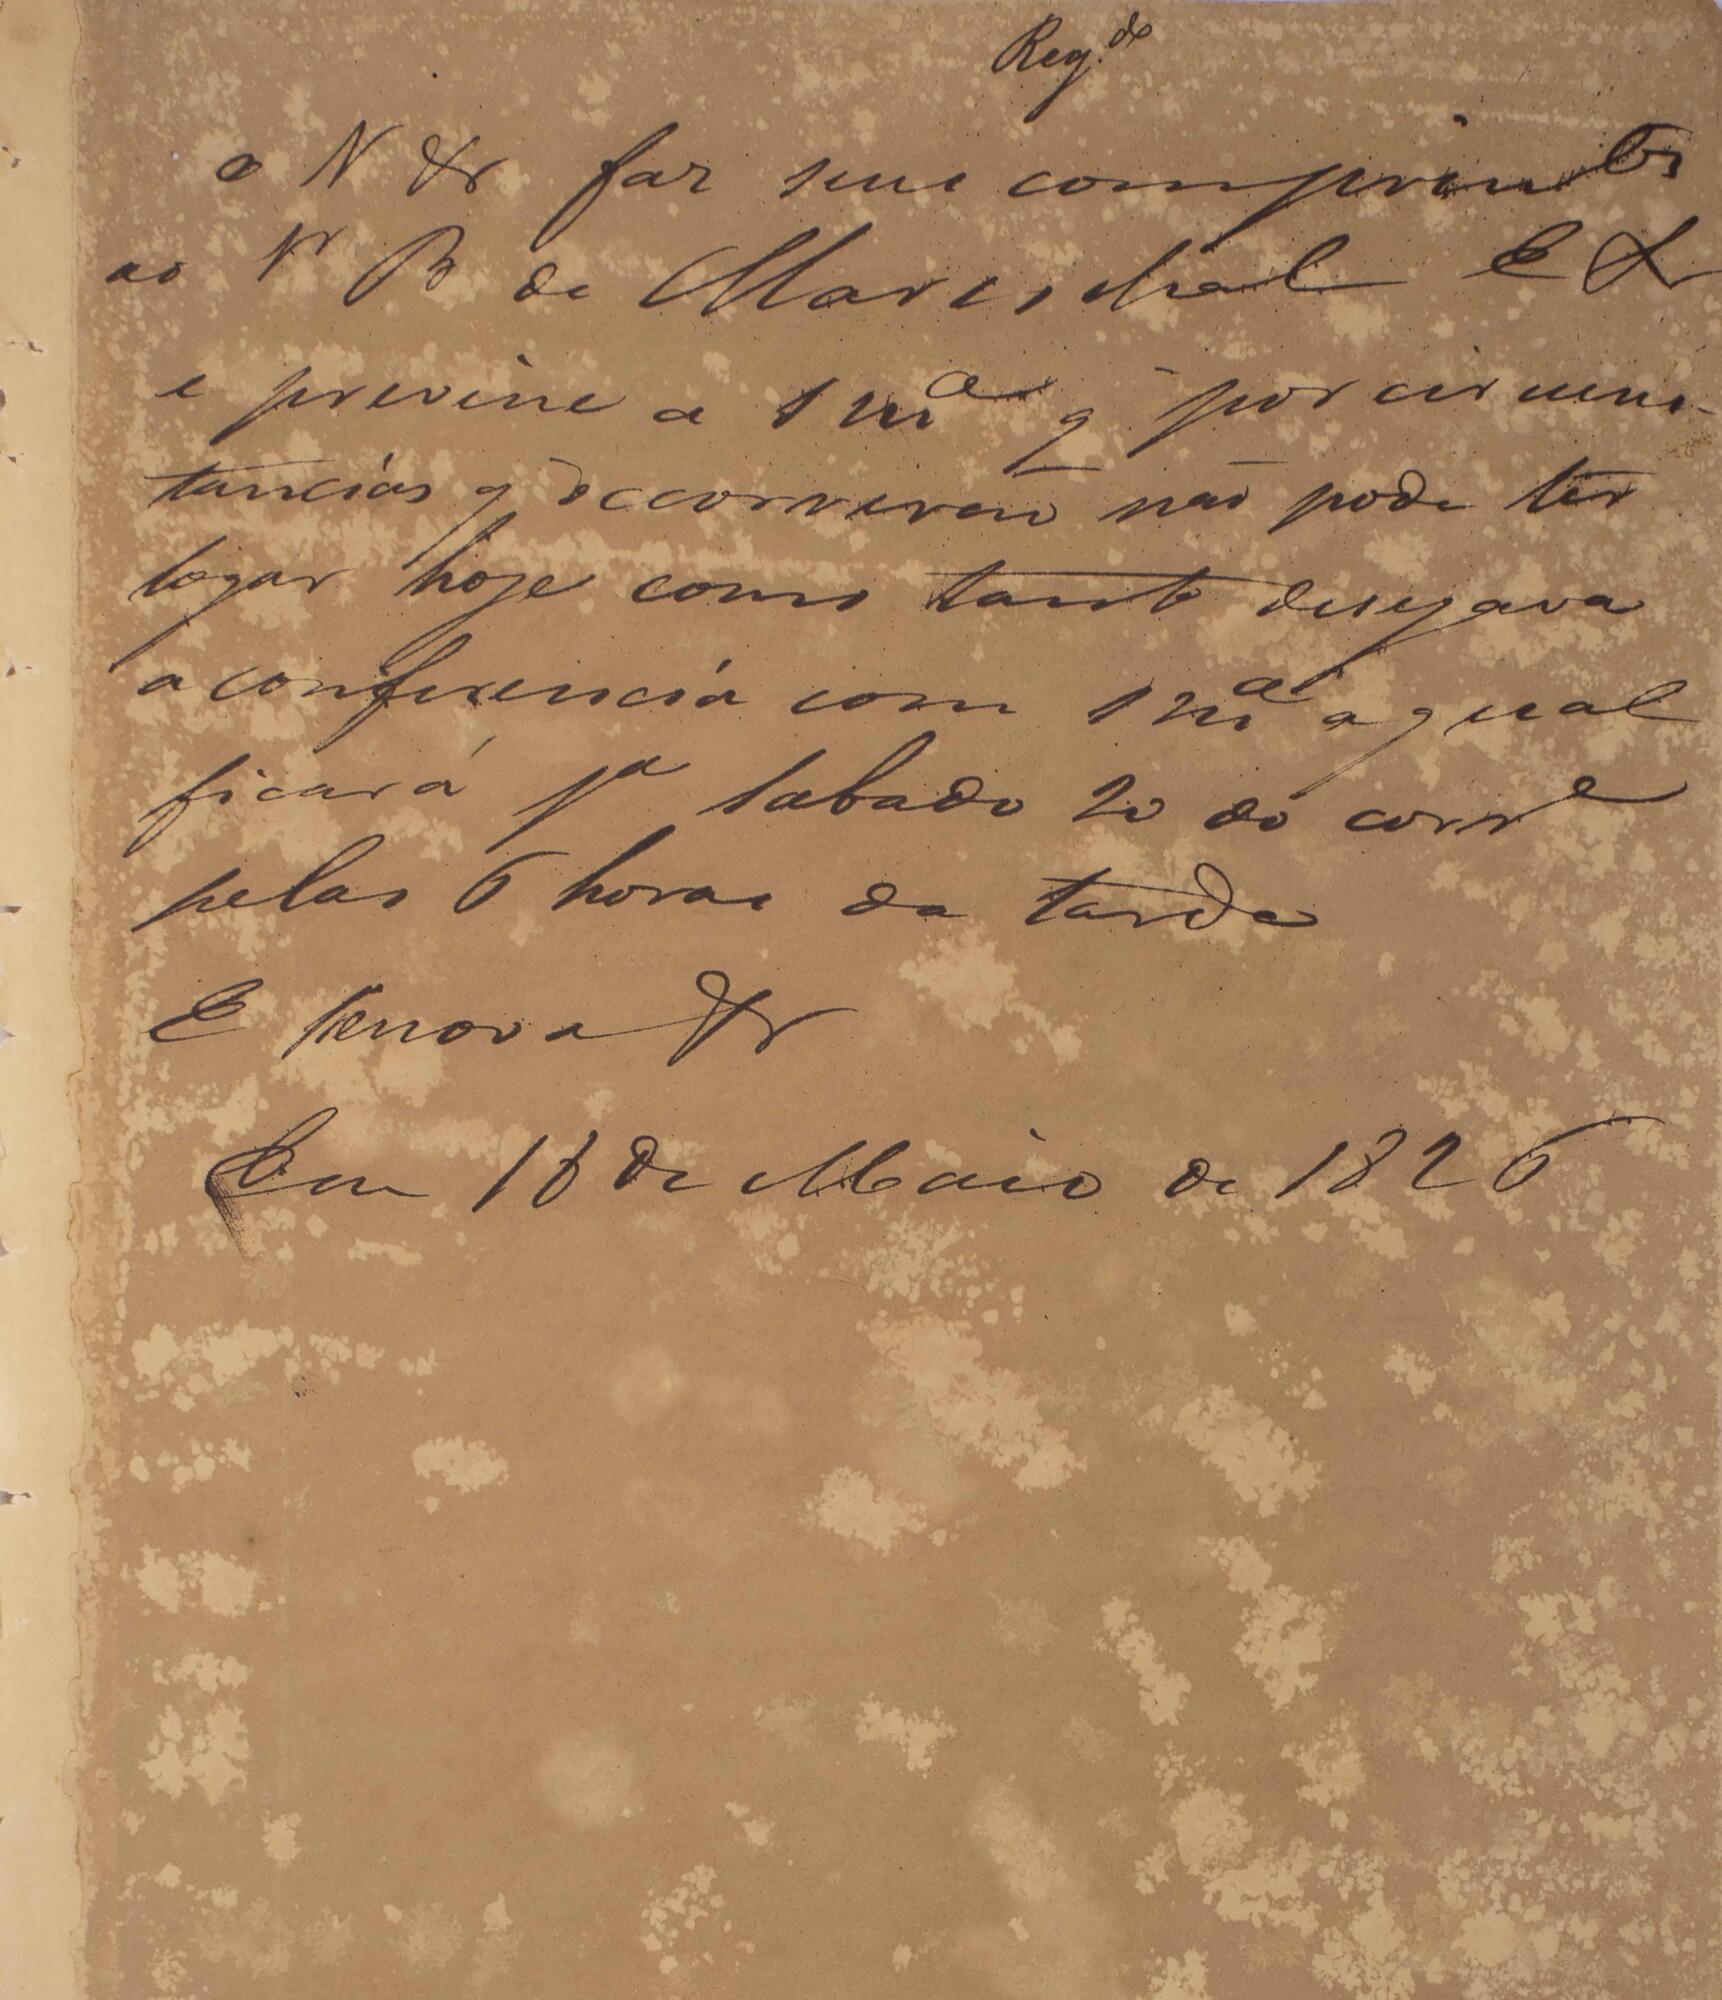 Reg.do
o N &r faz seus comprimtos
ao Sr B de Mareschal E &r
e previne a S Ma q por circuns-
tancias q occorrerão não pode ter
logar hoje como tanto desejava
a conferencia com S Ma a qual
ficará pa sabado 20 do corre
pelas 6 horas da tarde
E renova &r
Em 18 de Maio de 1826